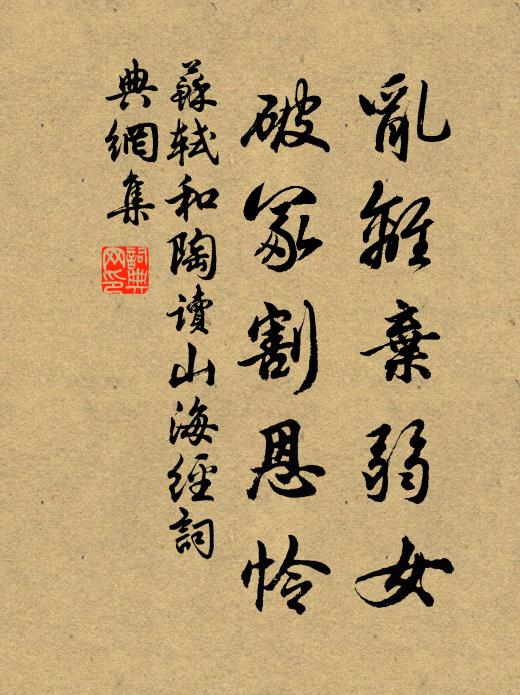 亂離棄弱女
破冢割恩怜
蘇軾和陶讀山海經詞
典網集
詞典
网印